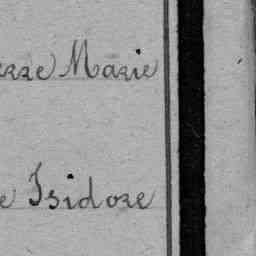 erre Marie
e Isidore